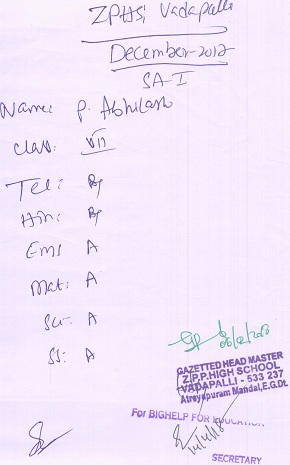 ZPHS, Vadapalli
December-2012
SA-I
Name: P. Abhilash
Class: VII
Tel: B+
Hin: B+
Eng A
Mat: A
Sci: A
SS: A
GAZETTED HEAD MASTER
Z.P.P.HIGH SCHOOL
VADAPALLI - 533 237
Atreyapuram Mandal, E.G.Dt.
For BIGHELP FOR EDUCATION
SECRETARY